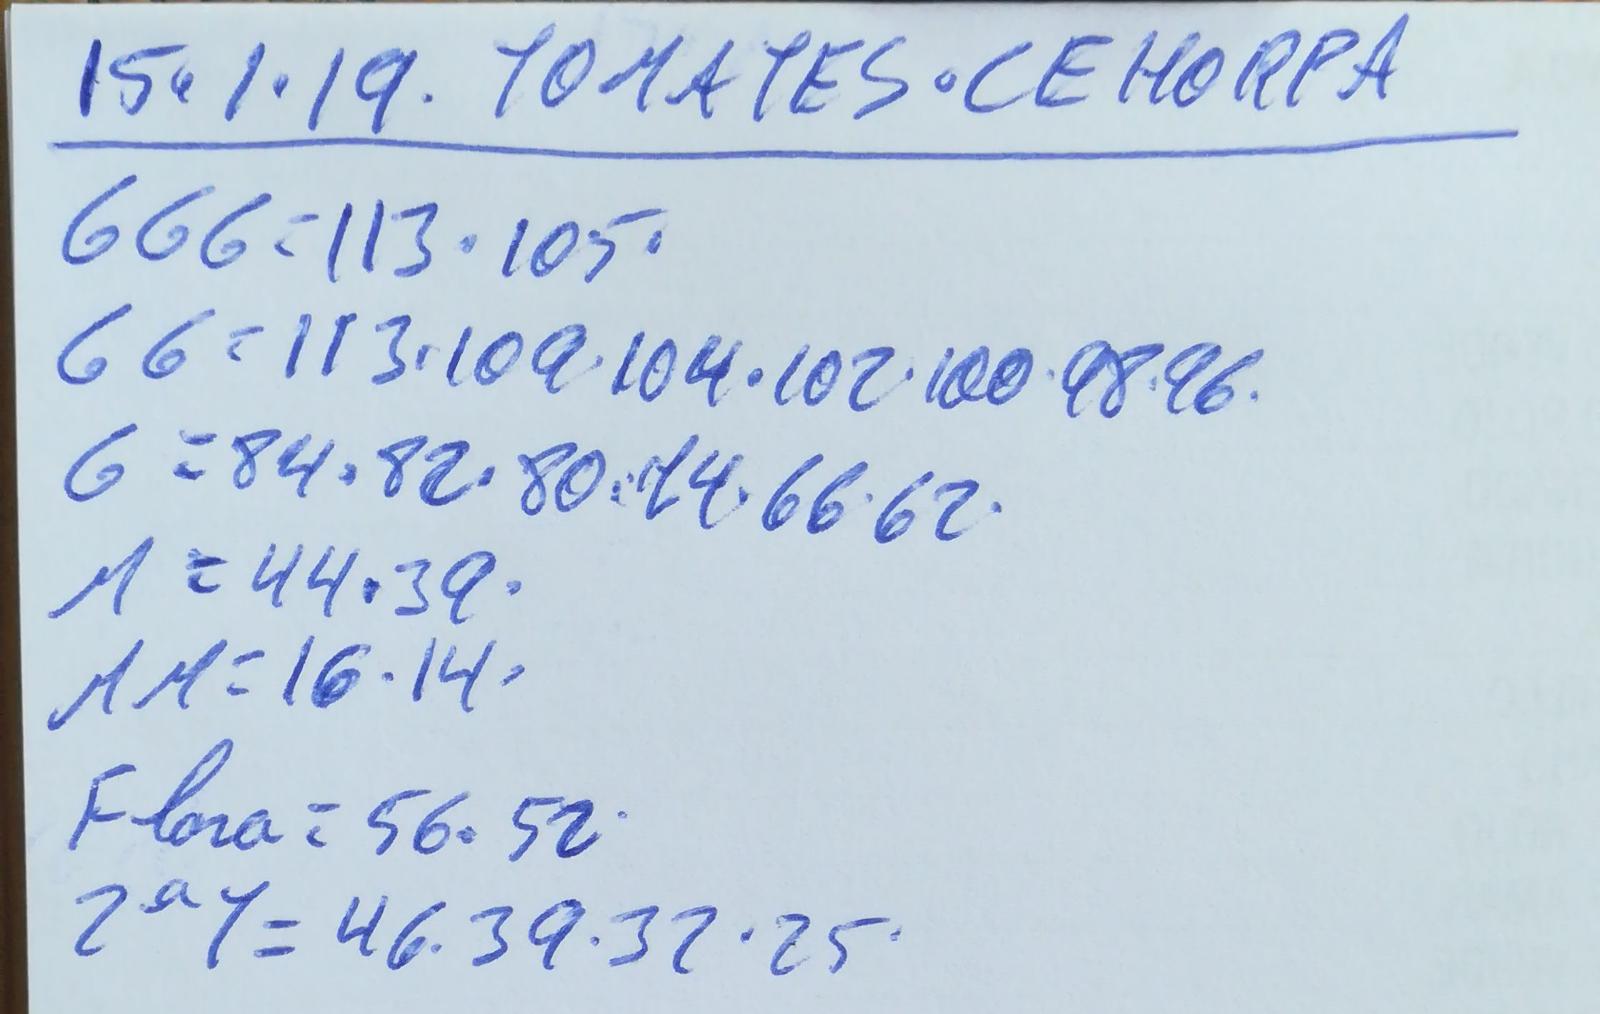 15.1.19. TOMATES.CEHORPA
GGG=113.105.
GG=113.109.104.102.100.98.96.
G=84.82.80.74.66.62.
M=44.39.
MM=16.14.
Flora=56.52.
2ªT=46.39.32.25.